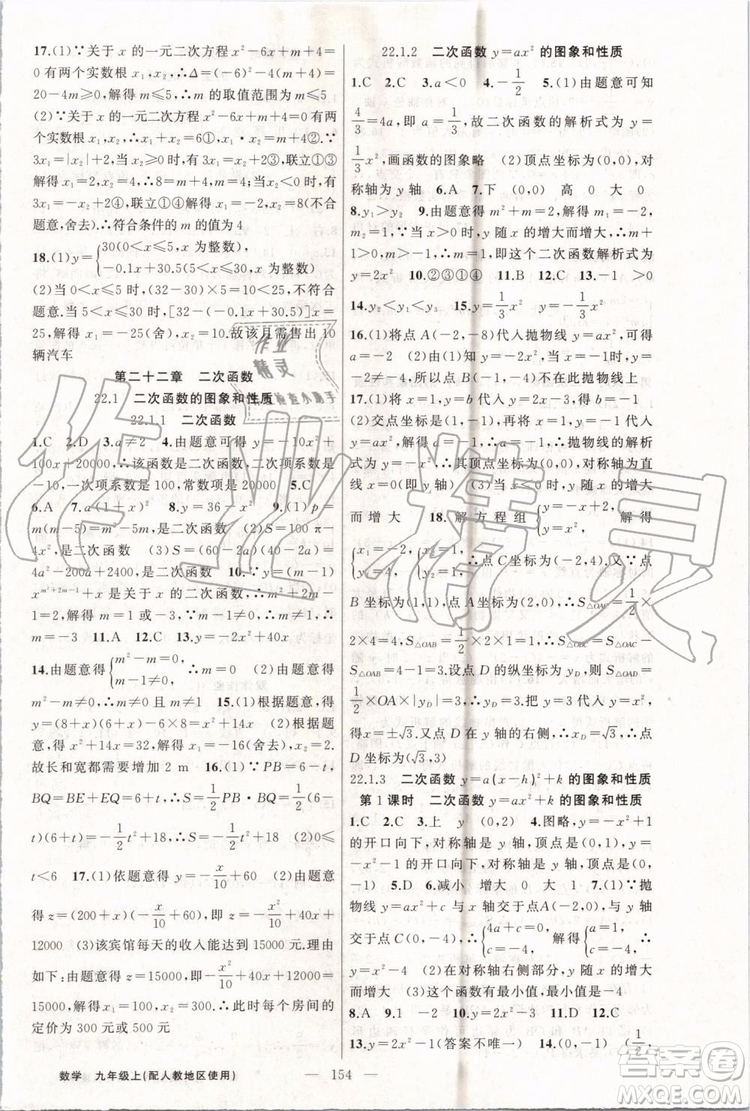 17.(1)∵关于 x 的一元二次方程 x²-6x+m+4=
0 有两个实数根 x₁,x₂,∴Δ=(-6)²-4(m+4)=
20-4m≥0,解得 m≤5,∴m 的取值范围为 m≤5
(2)∵关于 x 的一元二次方程 x²-6x+m+4=0 有两
个实数根 x₁,x₂,∴x₁+x₂=6①,x₁·x₂=m+4②.∵
3x₁=|x₂|+2,当 x₂≥0 时,有 3x₁=x₂+2③,联立①③
解得 x₁=2,x₂=4,∴8=m+4,m=4;当 x₂<0 时,有
3x₁=-x₂+2④,联立①④解得 x₁=-2,x₂=8(不合
题意,舍去).∴符合条件的 m 的值为 4
18.(1)y={30(0<x≤5,且 x 为整数)
-0.1x+30.5(5<x≤30,且 x 为整数)
(2)当 0<x≤5 时,(32-30)×5=10<25,不符合
题意;当 5<x≤30 时,[32-(-0.1x+30.5)]x=
25,解得 x₁=-25(舍去),x₂=10.故该月需售出 10
辆汽车
第二十二章 二次函数
22.1 二次函数的图象和性质
22.1.1 二次函数
1.C 2.D 3.a≠2 4.由题意可得 y=-10x²+
100x+20000,是二次函数,二次项系数是
-10,一次项系数是 100,常数项是 20000 5.C
6.A 7.a(1+x)² 8.y=36-x² 9.(1)p=
4a²=-2m²-5m,是二次函数 (2)S=100 π-
4x²,是二次函数 (3)S=(60-2a)(40-2a)=
4a²-200a+2400,是二次函数 10.∵y=(m-2)
x^(m²+2m-1)+x 是关于 x 的二次函数,∴
解得 m=1 或-3 11.A 12.C 13.y=-2x²+40x
14.由题意得{m²-m=0
m-1≠0 ∴m=0 (2)由题意得
m²-m≠0,∴m≠0 且 m≠1 15.(1)根据题意,得
y=(8-x)(6-x)-6×8=x²-14x (2)根据题意,得
x²-14x=-24,解得 x₁=12(舍去),x₂=2.
故长和宽都需要增加 2 m 16.(1)∵PB=6-t,
BQ=BE+EQ=6+t,∴S=½PB·BQ=½(6-
t)(6+t)=-½t²+18,∴S=-½t²+18 (2)0≤
t<6 17.(1)依题意得 y=-x/10+60 (2)依题意
得:z=x(-x/10+60)-20(-x/10+60)=
12000 (3)该宾馆每天的收入能达到 15000 元.理由
如下:由题意得:-
15000,解得 x₁=300,x₂=500,∴此时每个房间的
定价为 300 元或 500 元
22.1.2 二次函数 y=ax² 的图象和性质
1.C 2.C 3.a<0 4.-½ 5.(1)由题意可知
4/3=4a,即 a=1/3,故二次函数的解析式为 y=
1/3x²,画函数的图象略 (2)顶点坐标为(0,0),对
称轴为 y 轴 6.A 7.下 (0,0) 高 0 大 0
8.y₁>y₂ 9.由题意得 m²+m=2,解得 m₁=-2,
m₂=1.当 x>0 时,y 随 x 的增大而增大,∴m+
1>0,∴m>-1,∴m=1,这个二次函数解析式为
y=2x² 10.②③①④ 11.B 12.B 13.-1 >0
14.y₁<y₃<y₂ 15.y=1/3x² y=-1/3x²
16.(1)将点 A(-2,-8)代入抛物线 y=ax²,解得
a=-2 (2)∵抛物线的解析式为 y=-2x²,当 x=
-1 时,y=-2≠-4,∴点 B(-1,-4)不在此抛物线上
17.(1)将(1,b)代入 y=2x-3,解得 b=-1
(2)交点坐标为(1,-1),代入抛物线 y=ax²,
解得 a=-1,∴抛物线的解析
式为 y=-x²,顶点坐标为(0,0),对称轴为直
线 x=0(或 y 轴) (3)当 x<0 时,y 随 x 的增大
而增大 18.解方程组{
y=x², 解得
∴点 C 坐标为(-2,4),点
B 坐标为(1,1).又∵A(2,0),∴S△OAC=½×
2×4=4,S△OAB=½×2×1=1,∴S△OBC=S△OAC-
S△OAB=3.设点 D 的纵坐标为 y_D,则 S△OAD=
½×OA×|y_D|=3,∴y_D=3.把 y=3 代入 y=x²,
得 x=±√3.又∵点 D 在 y 轴的右侧,∴x=√3,∴
点 D 的坐标为(√3,3)
22.1.3 二次函数 y=a(x-h)²+k 的图象和性质
第 1 课时 二次函数 y=ax²+k 的图象和性质
1.C 2.C 3.上 y (0,2) 4.图略,y=-x²+1
的开口向下,对称轴是 y 轴,顶点坐标是(0,1),
y=-x²-1 的开口向下,对称轴是 y 轴,顶点坐标是(0,
-1) 5.D 6.减小 增大 0 大 1 7.(1)∵抛物
线 y=ax²+c 与 x 轴交于点(-2,0),与 y 轴
交于点 C(0,-4),∴{4a+c=0
c=-4, 解得{a=1
c=-4,∴
y=x²-4 (2)在对称轴右侧部分,y 随 x 的增大
而增大 (3)这个函数有最小值,最小值是-4
8.A 9.1 -2 10.y=-2x²-2 11.D 12.C
13.y=-x²+4(答案不唯一) 14.(1)(½)
数学 九年级上(配人教地区使用)
— 154 —
作业精灵
作业
精灵
答案圈